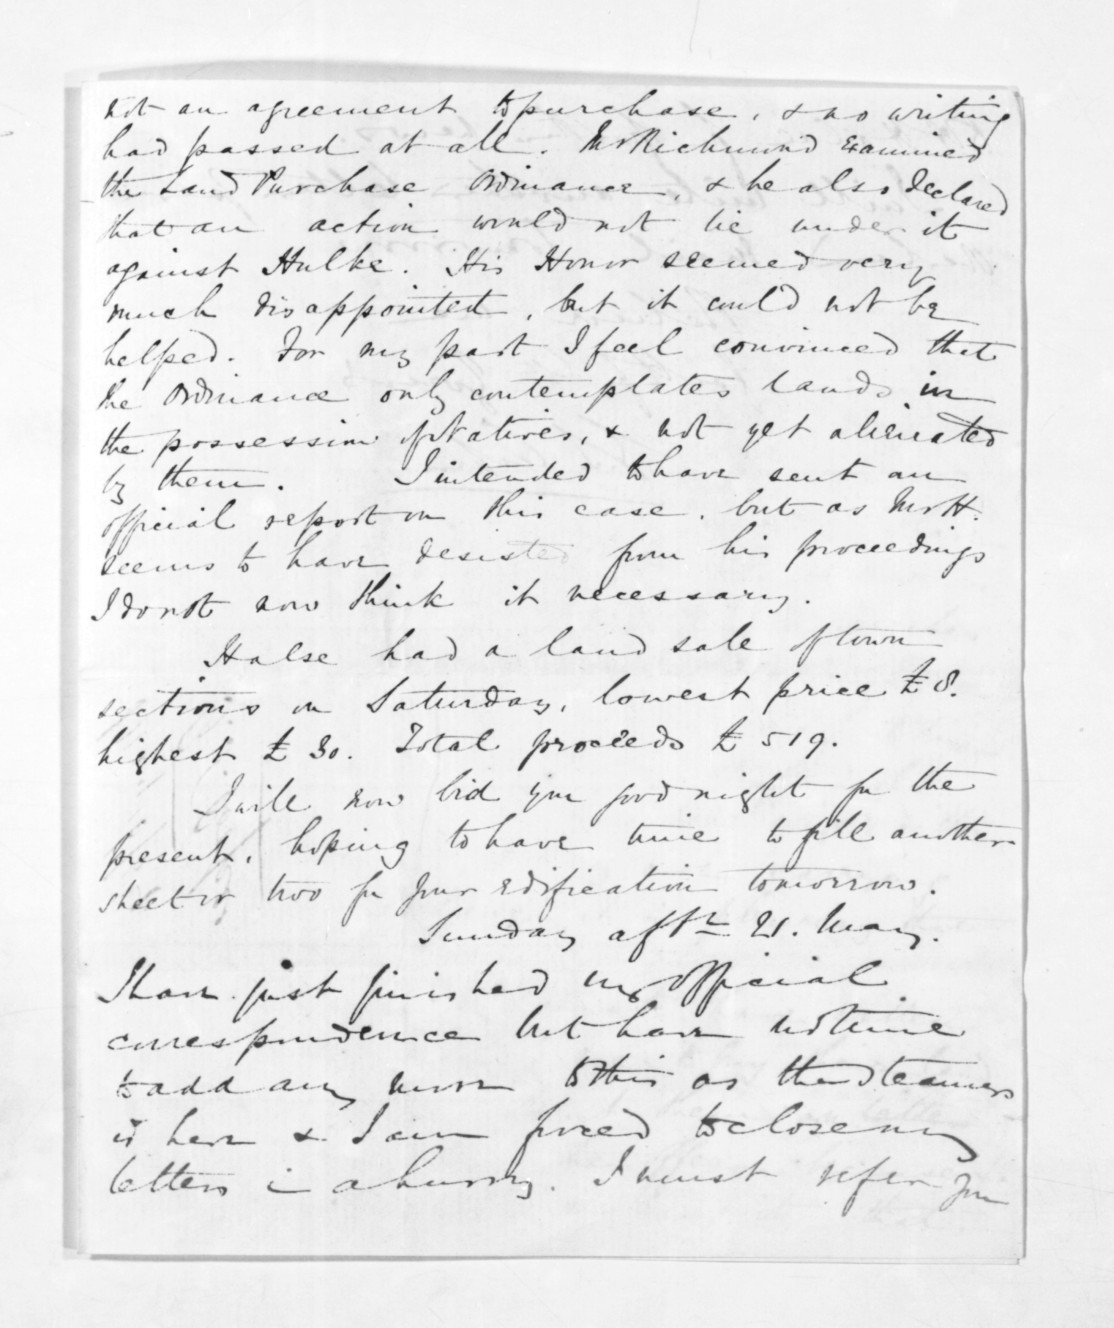 not an agreement to purchase, & no writing
had passed at all. Mr Richmond examined
the Land Purchase Ordinance, & he also declared
that an action would not lie under it
against Hulke. His Honor seemed very
much disappointed, but it could not be
helped. For my part I feel convinced that
the Ordinance only contemplates lands in
the possession of Natives, & not yet alienated
by them. I intended to have sent an
official report on this case, but as Mr H.
seems to have desisted from his proceedings
I do not now think it necessary.
Halse had a land sale of town
sections on Saturday, lowest price £8.
highest £30. Total proceeds £519.
I will now bid you good night for the
present, hoping to have time to fill another
sheet or two for your edification tomorrow.
Sunday aftn 21. May.
I have just finished my official
correspondence but have no time
to add any more to this as the steamer
is here & I am forced to close my
letters in a hurry. I must refer you